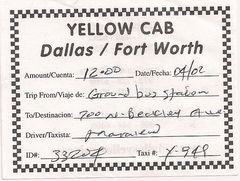 YELLOW CAB
Dallas / Fort Worth
Amount/Cuenta: 12.00 Date/Fecha: 04/02
Trip From/Viaje de: Ground bus station
To/Destinacion: 700 N. Beckley Ave
Driver/Taxista:
ID#: 33204 Taxi #: Y-949